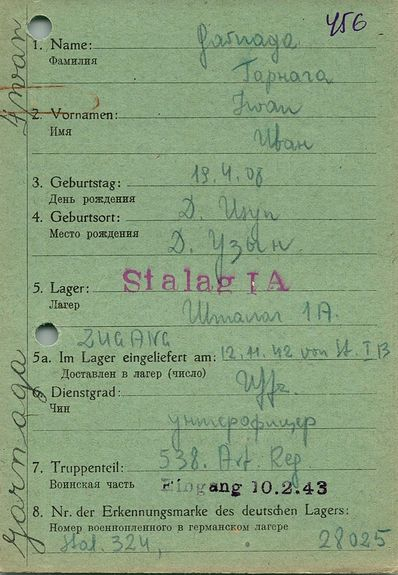 456
1. Name: Garnaga
Фамилия Гарнага
2. Vornamen: Iwan
Имя Иван
3. Geburtstag: 19.4.08
День рождения
4. Geburtsort: D.
Место рождения Д. Узын
5. Lager: Stalag IA
Лагерь Шталаг 1А.
ZUGANG
5a. Im Lager eingeliefert am: 12.11.42 von St. I B
Доставлен в лагерь (число)
6. Dienstgrad: Uffz.
Чин унтерофицер
7. Truppenteil: 538. Art. Reg
Воинская часть Eingang 10.2.43
8. Nr. der Erkennungsmarke des deutschen Lagers:
Номер военнопленного в германском лагере
Stal. 324, 28025
Garnaga Iwan